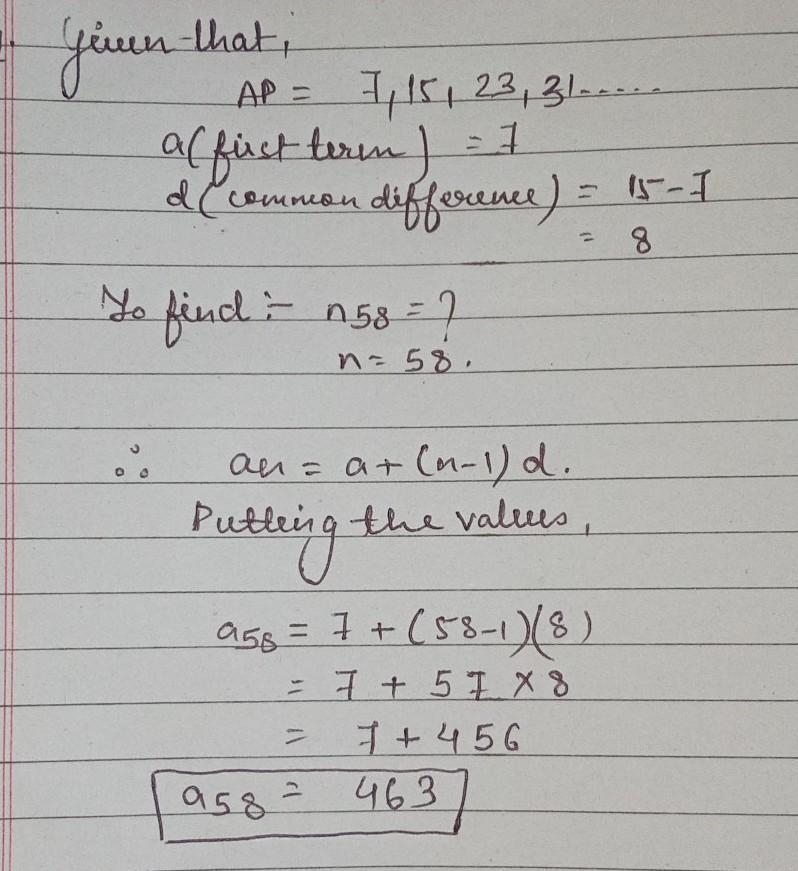 Given that,
AP = 7, 15, 23, 31.....
a (first term) = 7
d (common difference) = 15 - 7
= 8
To find :- n58 = ?
n = 58.
∴ an = a + (n-1) d.
Putting the values,
a58 = 7 + (58-1)(8)
= 7 + 57 × 8
= 7 + 456
a58 = 463